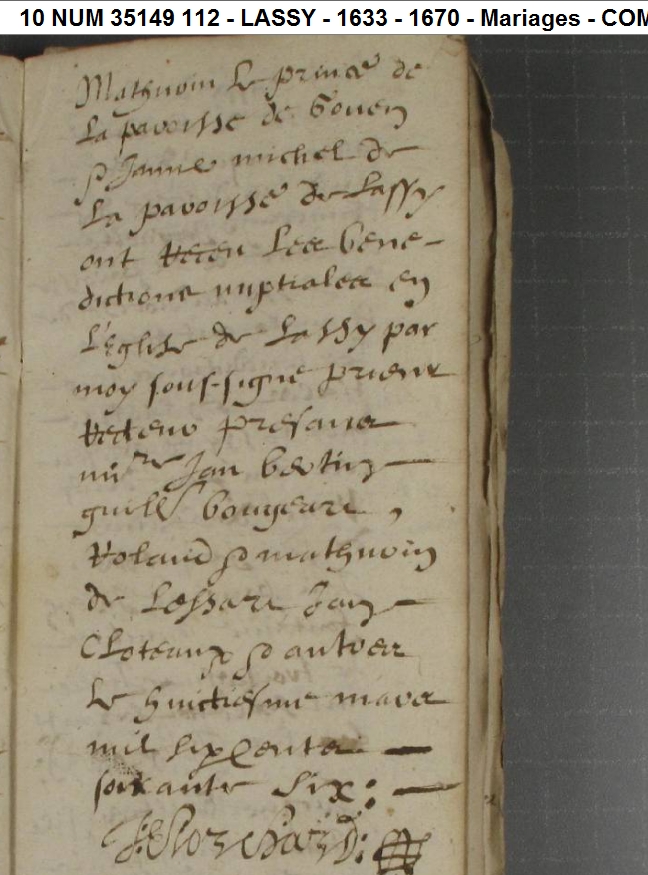 10 NUM 35149 112 - LASSY - 1633 - 1670 - Mariages - COM
Mathurin Le prince de
La paroisse de Goven
& Janne michel de
La paroisse de Lassy
ont receu Les bene-
dictions nuptiales en
L'Eglise de Lassy par
moy sous-signe prieur
Recteur presans
Jan bertin
guill bougeart,
Roland & mathurin
de Lessart Jan
Cloteaux & autres
Le huictiesme mars
mil six Cents
soixante six :